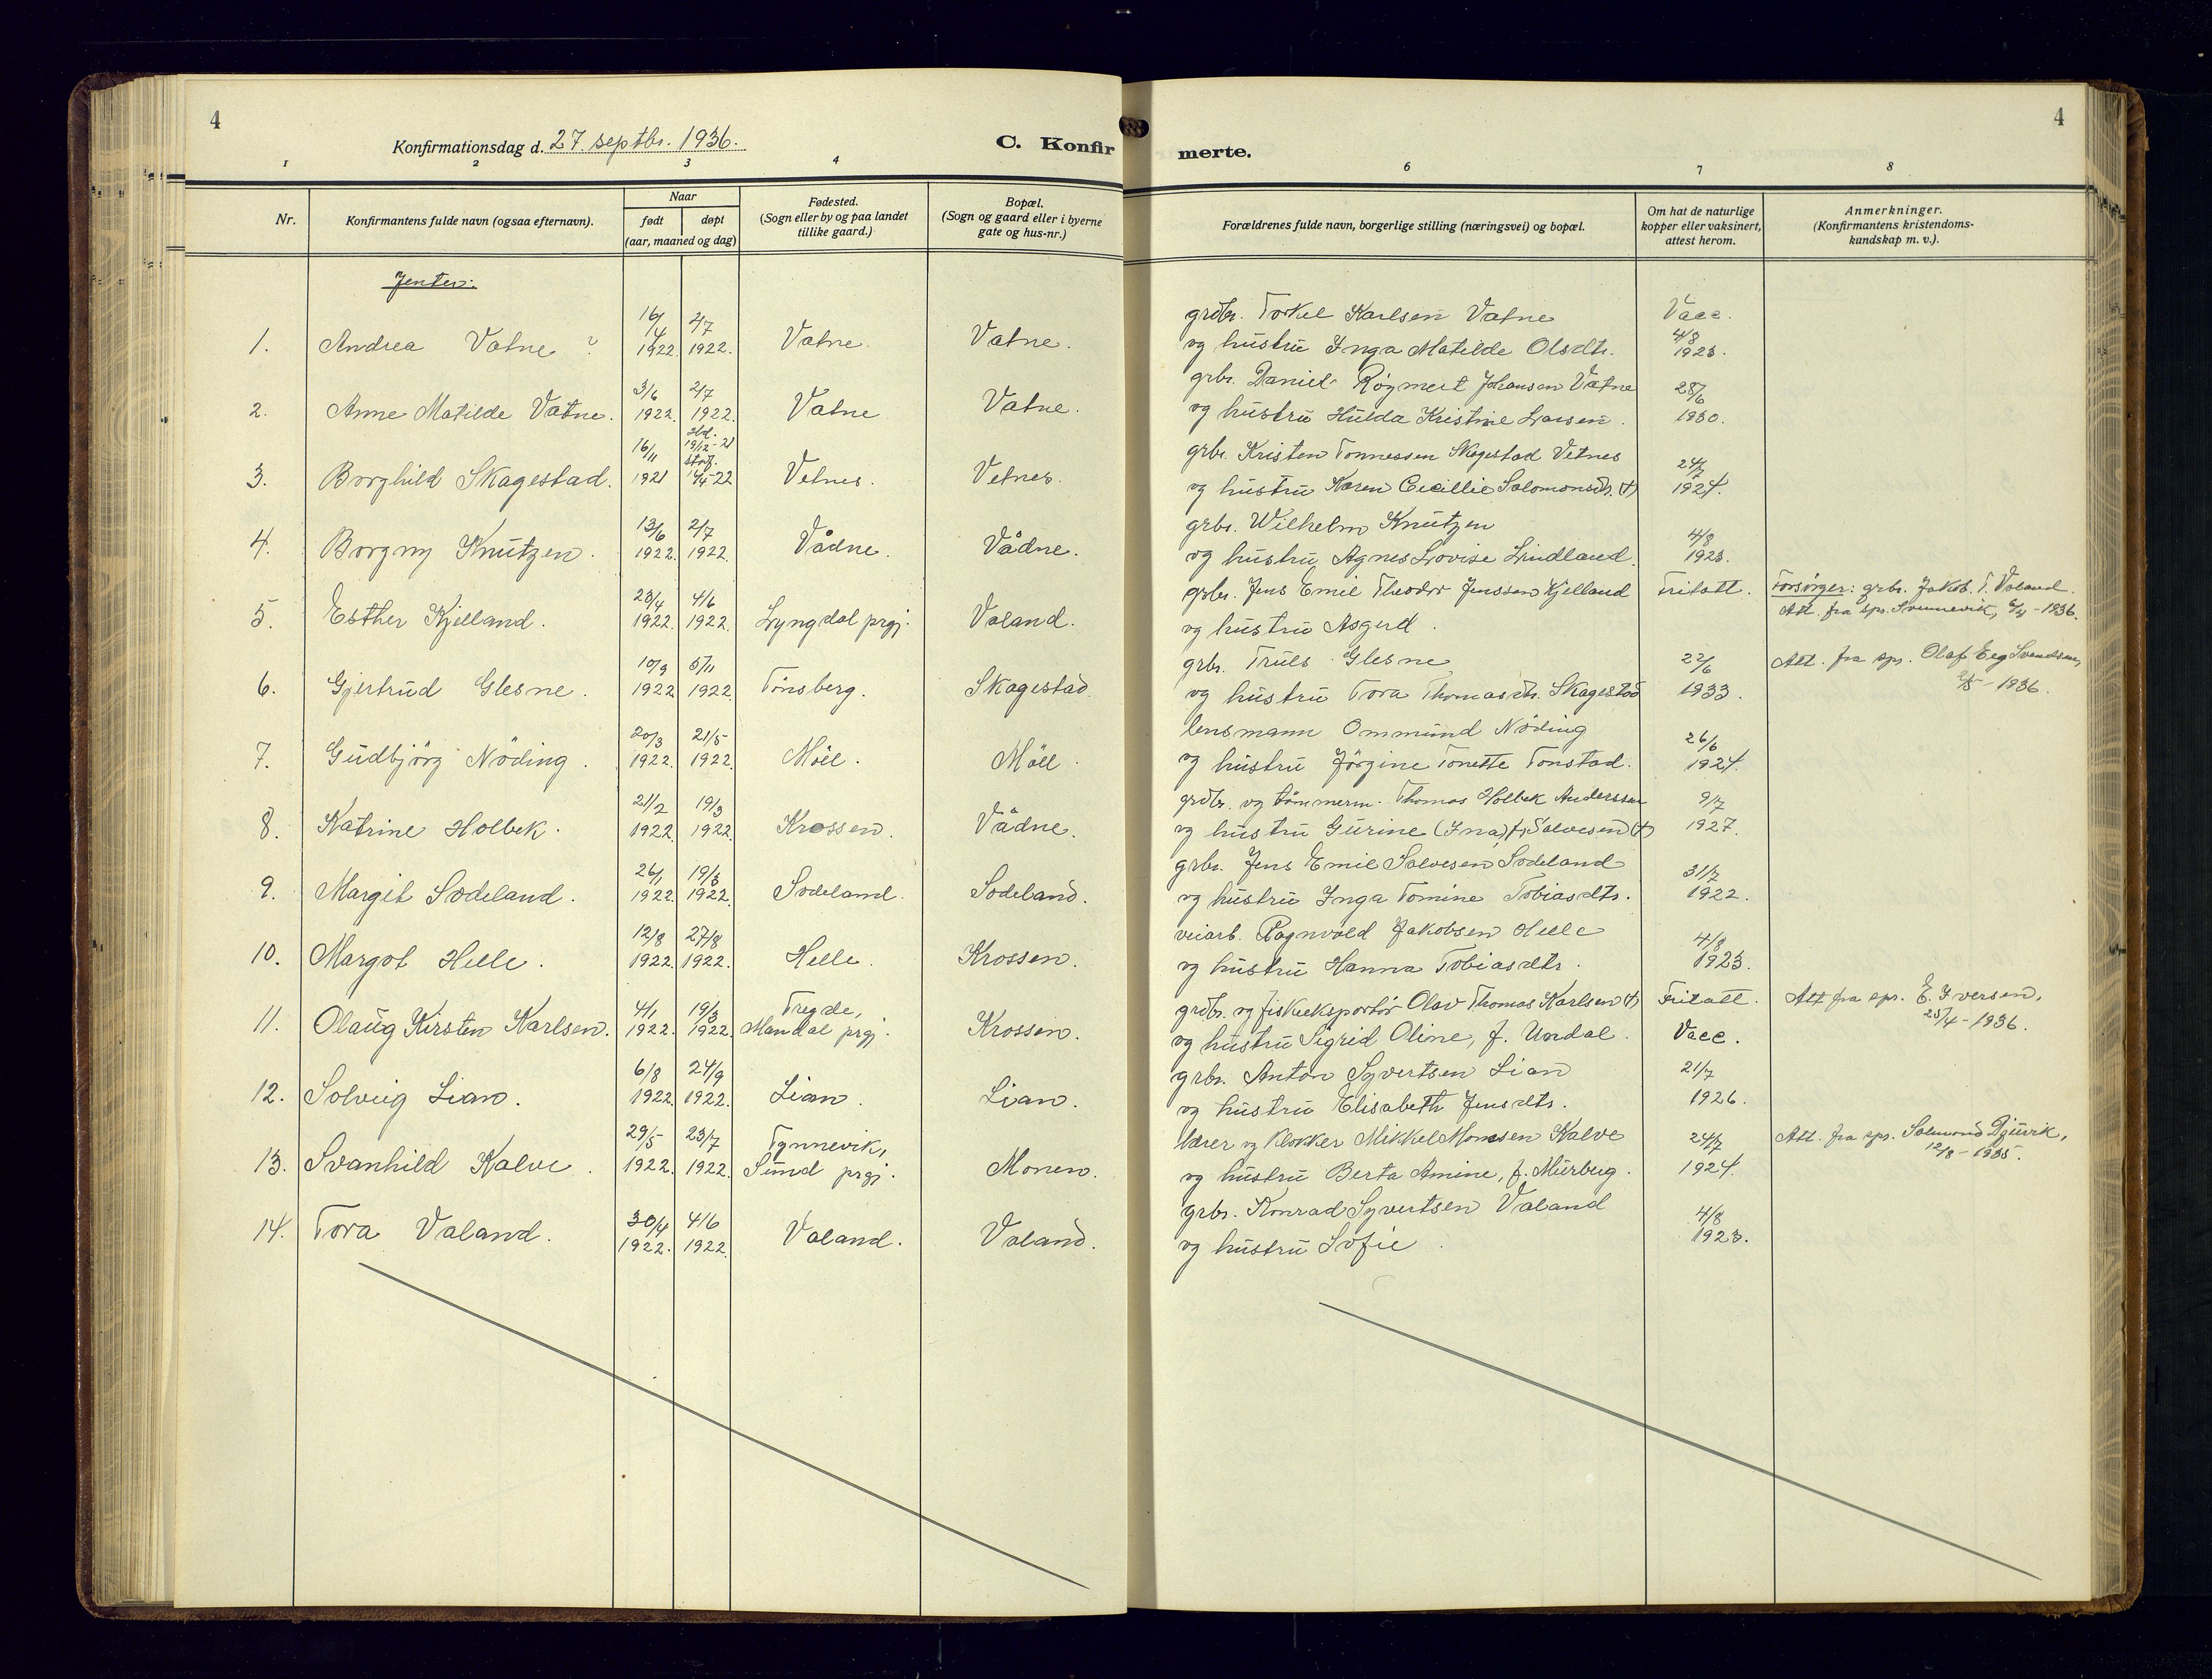 4
Konfirmationsdag d. 27 septbr. 1936.
C. Konfir
merte.
4
1 2 3 4 6 7 8
Nr.
Konfirmantens fulde navn (ogsaa efternavn).
Naar
født døpt
(aar, maaned og dag)
Fødested.
(Sogn eller by og paa landet
tillike gaard.)
Bopæl.
(Sogn og gaard eller i byerne
gate og hus-nr.)
Forældrenes fulde navn, borgerlige stilling (næringsvei) og bopæl.
Om hat de naturlige
kopper eller vaksinert,
attest herom.
Anmerkninger.
(Konfirmantens kristendoms-
kundskap m. v.).
Jenter:
1. Andrea Vatne 16/4 1922. 2/7 1922. Vatne. Vatne.
grdbr. Torkel Karlsen Vatne
og hustru Inga Matilde Olsdtr.
Vacc. 4/8 1923.
2. Anne Matilde Vatne. 3/6 1922. 2/7 1922. Vatne Vatne.
grbr. Daniel Røgmert Johansen Vatne
og hustru Hulda Kristine Larsen.
28/6 1930.
3. Borghild Skagestad. 16/11 1921 19/12-21 stadf. 17/4-22 Vetnes. Vetnes.
grbr. Kristen Tonnessen Skagestad Vetnes
og hustru Karen Cecillie Salomonsdtr. (†)
24/7 1924.
4. Borgny Knutzen. 13/6 1922. 2/7 1922 Vådne. Vådne.
grbr. Wilhelm Knutzen
og hustru Agnes Lovise Lindland.
4/8 1923.
5. Esther Kjelland. 23/4 1922. 4/6 1922. Lyngdal prgj. Valand.
grbr. Jens Emil Theodor Jenssen Kjelland
og hustru Asgerd.
Fritatt.
Forsørger: grbr. Jakob T. Valand.
Att. fra spr. Svennevik, - 1936.
6. Gjertrud Glesne. 10/9 1922. 5/11 1922. Tönsberg. Skagestad.
grbr. Truls Glesne
og hustru Tora Thomasdtr. Skagestad
22/6 1933.
Att. fra spr. Olaf Eeg Svendsen,
2/5 - 1936.
7. Gudbjörg Nöding. 20/3 1922. 21/5 1922. Möll. Möll.
lensmann Ommund Nöding
og hustru Jörgine Tonette Tonstad.
26/6 1924.
8. Katrine Holbek. 21/2 1922. 19/3 1922. Krossen. Vådne.
grdbr. og tömmerm. Thomas Holbek Anderssen
og hustru Gurine (Ina) f. Salvesen (†)
9/7 1927.
9. Margit Sodeland. 26/1 1922. 19/3 1922. Sodeland. Sodeland.
grbr. Jens Emil Salvesen Sodeland
og hustru Inga Tomine Tobiasdtr.
31/7 1922.
10. Margot Helle. 12/8 1922. 27/8 1922. Helle. Krossen.
veiarb. Ragnvald Jakobsen Helle
og hustru Hanna Tobiasdtr.
4/8 1923.
11. Olaug Kirsten Karlsen. 4/1 1922. 19/3 1922. Tregde, Mandal prgj. Krossen.
grdbr. og fiskeeksportör Olav Thomas Karlsen (†)
og hustru Sigrid Oline, f. Undal.
Fritatt. Vacc.
Att fra spr. E. Iversen,
25/4 - 1936.
12. Solveig Lian. 6/8 1922. 24/9 1922. Lian. Lian.
grbr. Anton Syvertsen Lian
og hustru Elisabeth Jensdtr.
21/7 1926.
13. Svanhild Kalve. 29/5 1922. 23/7 1922. Tynnevik, Sund prgj. Monen.
lærer og klokker Mikkel Monsen Kalve
og hustru Berta Amine, f. Murbug.
24/7 1924.
Att. fra spr. Salmond Djuvik,
12/8 - 1935.
14. Tora Valand. 30/4 1922. 4/6 1922. Valand. Valand.
grbr. Konrad Syvertsen Valand
og hustru Sofie.
4/8 1923.